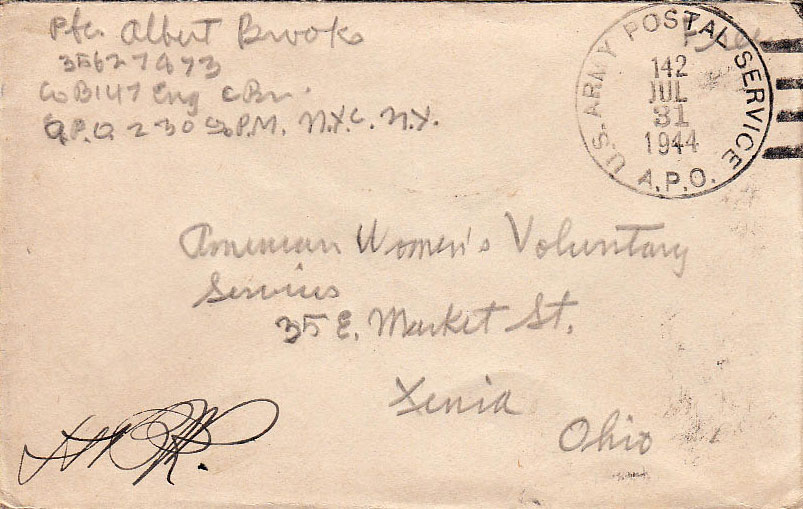 Pfc. Albert Brooks
35627973
Co B 147 Eng C Bn.
A.P.O. 230 % P.M. N.Y.C. N.Y.
Free
U.S. ARMY POSTAL SERVICE
142
JUL
31
1944
A.P.O.
American Women's Voluntary
Services
35 E. Market St.
Xenia
Ohio